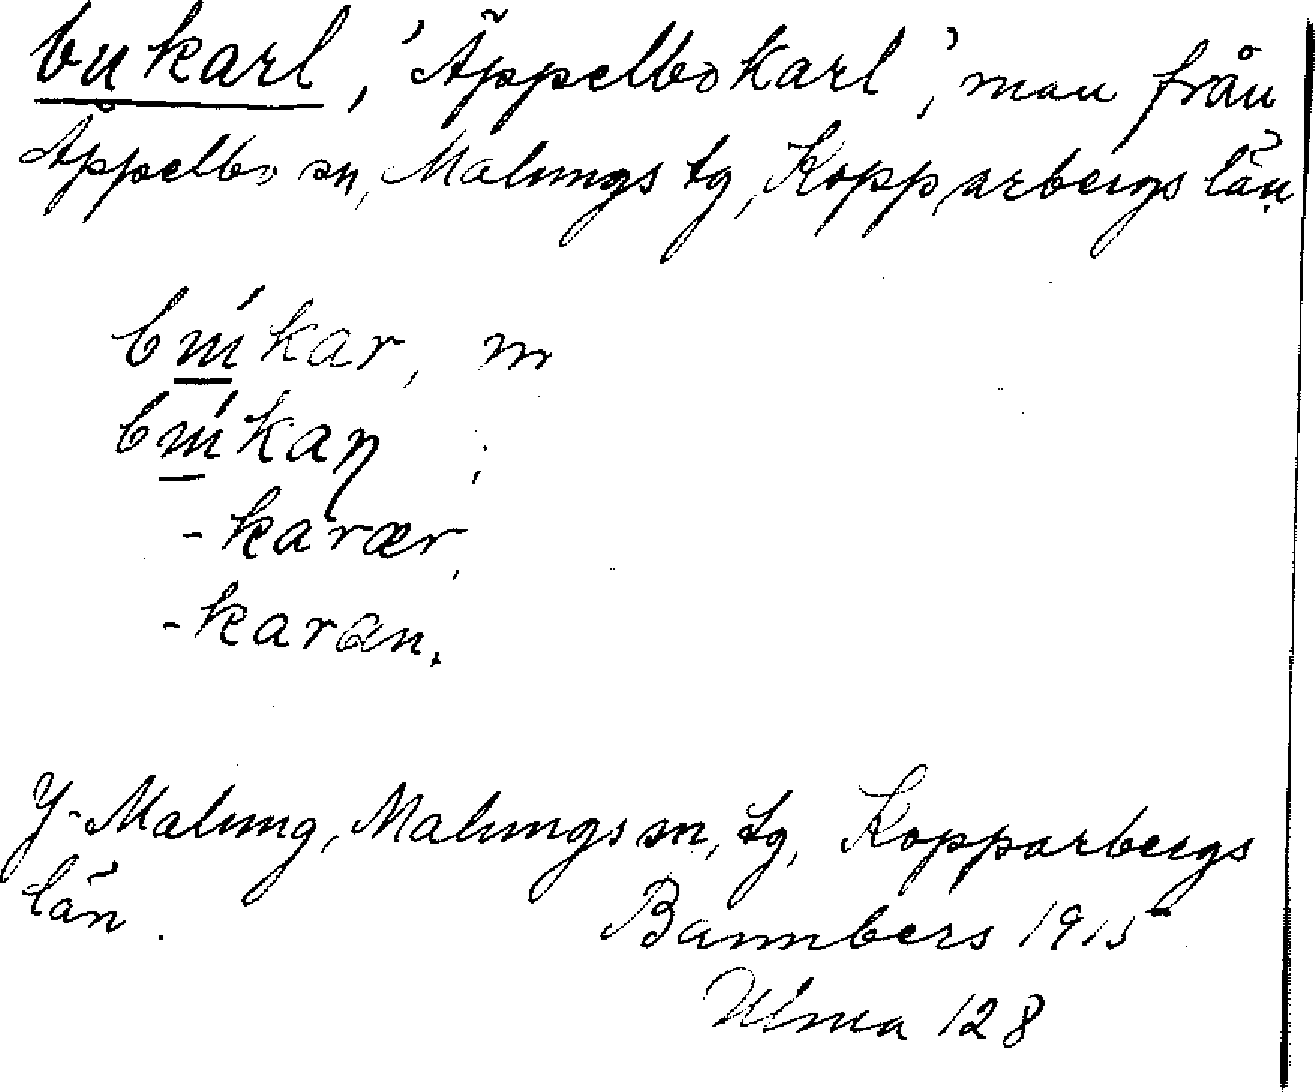 bukarl, 'Äppelbokarl', man från
Äppelbo sn, Malungs tg, Kopparbergs län
búkar, m
búkaɳ ;
-karær,
-karan.
Y-Malung, Malungs sn, tg, Kopparbergs
län.
Bannbers 1915
Ulma 128